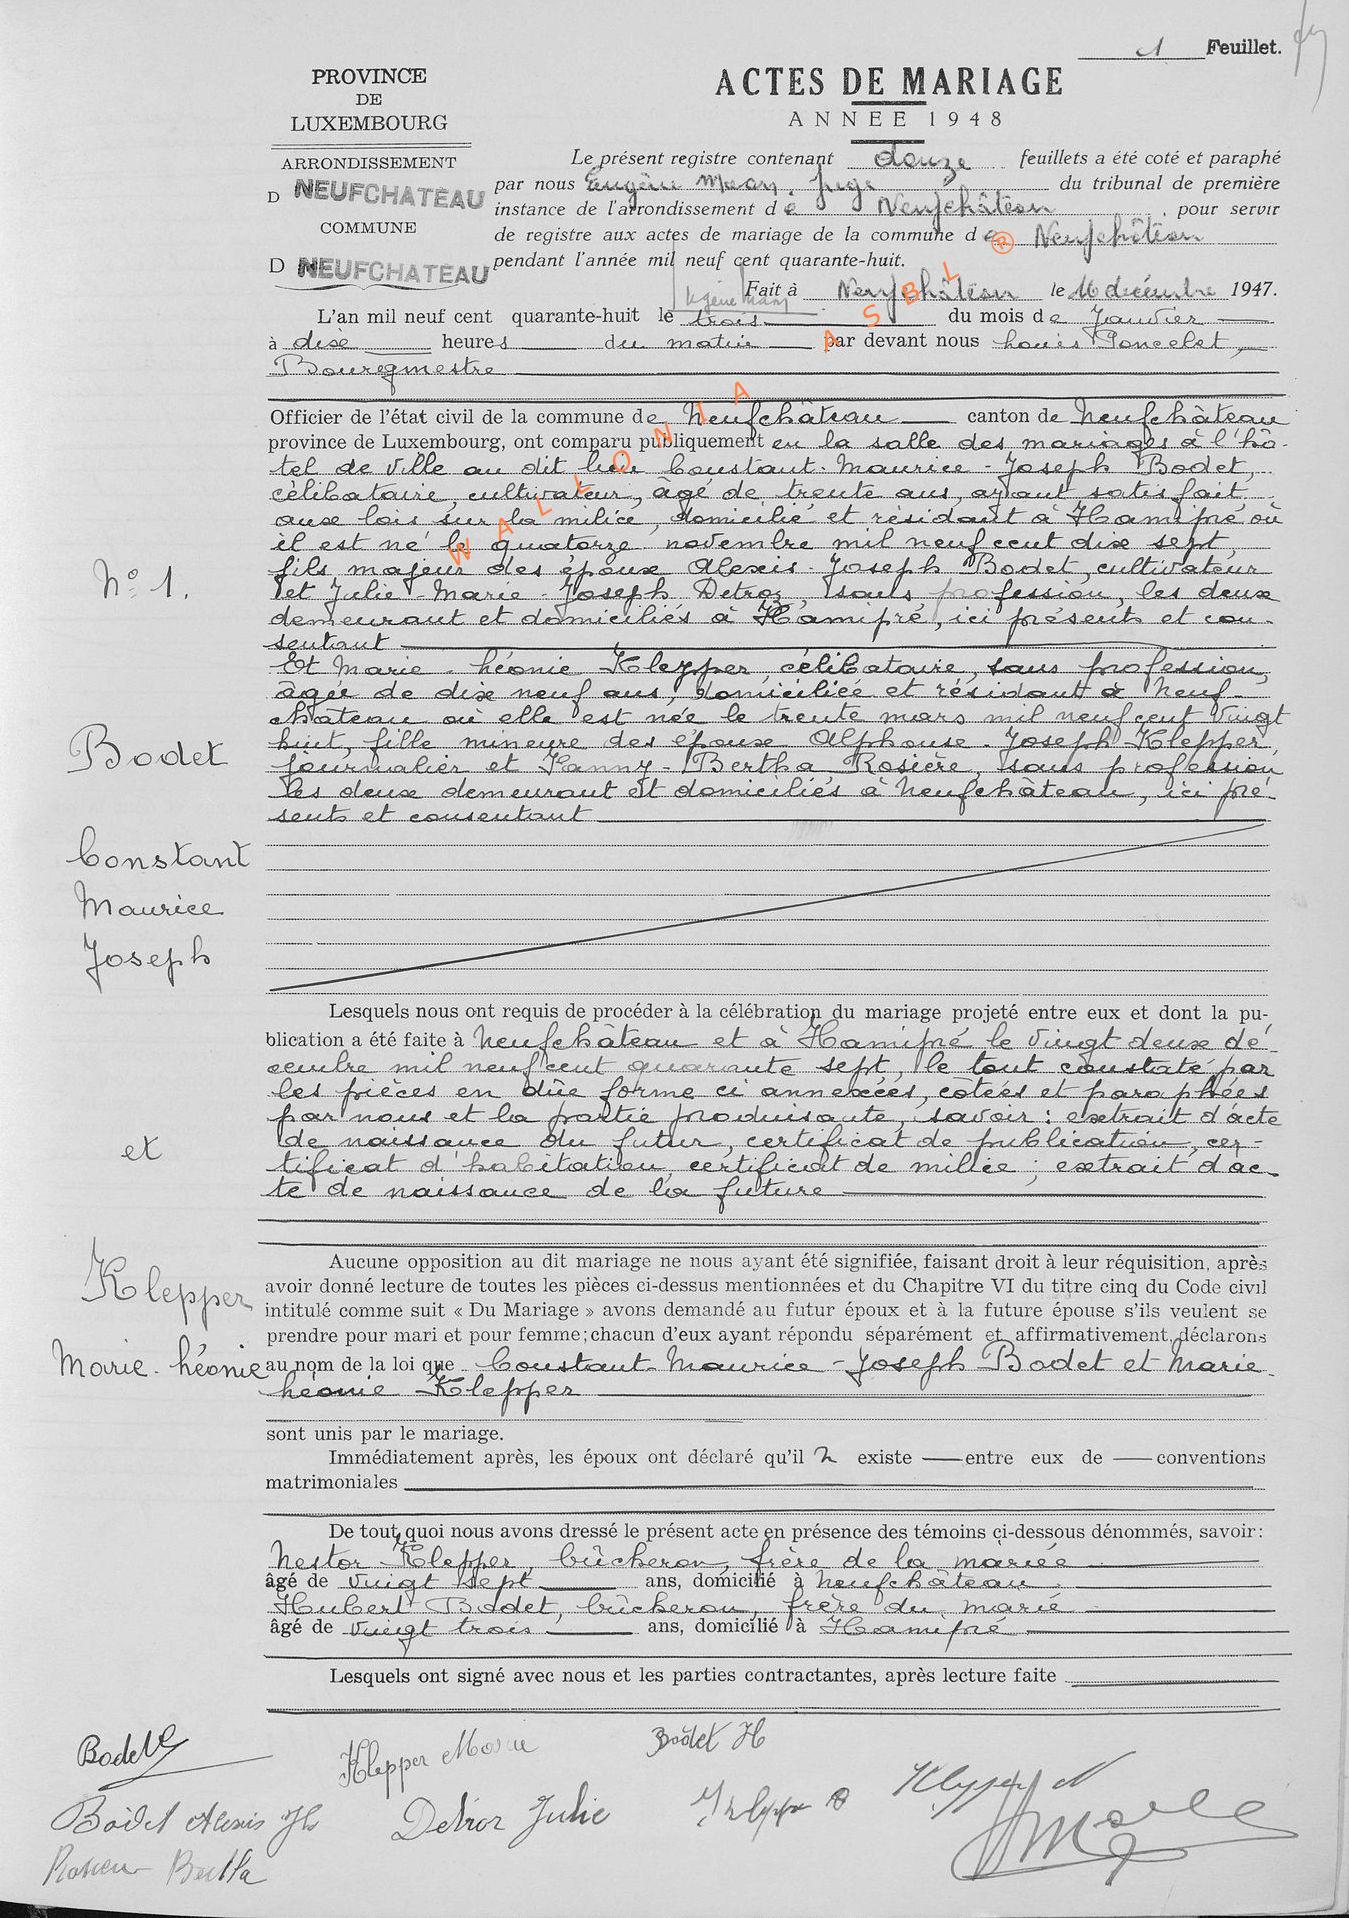 1 Feuillet.
PROVINCE
DE
LUXEMBOURG
ARRONDISSEMENT
D NEUFCHATEAU
COMMUNE
D NEUFCHATEAU
ACTES DE MARIAGE
ANNEE 1948
Le présent registre contenant douze feuillets a été coté et paraphé
par nous Eugène Juge du tribunal de première
instance de l'arrondissement de Neufchâteau pour servir
de registre aux actes de mariage de la commune de Neufchâteau
pendant l'année mil neuf cent quarante-huit.
Fait à Neufchâteau le 16 décembre 1947.
L'an mil neuf cent quarante-huit le trois du mois de Janvier
à dix heures du matin par devant nous Louis Poncelet,
Bourgmestre
Officier de l'état civil de la commune de Neufchâteau canton de Neufchâteau
province de Luxembourg, ont comparu publiquement en la salle des mariages à l'hô-
tel de ville au dit lieu Constant-Maurice-Joseph Bodet,
célibataire, cultivateur, âgé de trente ans, ayant satisfait
aux lois sur la milice, domicilié et résidant à Hamipré où
il est né le quatorze novembre mil neuf cent dix sept,
fils majeur des époux Alexis-Joseph Bodet, cultivateur
et Julie-Marie-Joseph Detroz, sans profession, les deux
demeurant et domiciliés à Hamipré, ici présents et con-
sentant
Et Marie-Léonie Klepper, célibataire, sans profession,
âgée de dix neuf ans, domiciliée et résidant à Neuf-
château où elle est née le trente mars mil neuf cent vingt
huit, fille mineure des époux Alphonse-Joseph Klepper,
journalier et Fanny-Bertha Rosière, sans profession
les deux demeurant et domiciliés à Neufchâteau, ici pré-
sents et consentant
No 1.
Bodet
Constant
Maurice
Joseph
et
Klepper
Marie-Léonie
Lesquels nous ont requis de procéder à la célébration du mariage projeté entre eux et dont la pu-
blication a été faite à Neufchâteau et à Hamipré le vingt deux dé-
cembre mil neuf cent quarante sept, le tout constaté par
les pièces en dûe forme ci annexées, côtées et paraphées
par nous et la partie produisante, savoir : extrait d'acte
de naissance du futur, certificat de publication, cer-
tificat d'habitation, certificat de milice ; extrait d'ac-
te de naissance de la future
Aucune opposition au dit mariage ne nous ayant été signifiée, faisant droit à leur réquisition, après
avoir donné lecture de toutes les pièces ci-dessus mentionnées et du Chapitre VI du titre cinq du Code civil
intitulé comme suit « Du Mariage » avons demandé au futur époux et à la future épouse s'ils veulent se
prendre pour mari et pour femme; chacun d'eux ayant répondu séparément et affirmativement, déclarons
au nom de la loi que Constant Maurice-Joseph Bodet et Marie-
Léonie Klepper
sont unis par le mariage.
Immédiatement après, les époux ont déclaré qu'il n existe entre eux de conventions
matrimoniales
De tout quoi nous avons dressé le présent acte en présence des témoins ci-dessous dénommés, savoir :
Nestor Klepper, bûcheron, frère de la mariée
âgé de vingt sept ans, domicilié à Neufchâteau.
Hubert Bodet, bûcheron, frère du marié
âgé de vingt trois ans, domicilié à Hamipré
Lesquels ont signé avec nous et les parties contractantes, après lecture faite
Klepper Marie
Bodet H
Bodet Alexis
Detroz Julie
Klepper N
Bertha
WALLONIA ASBL ®